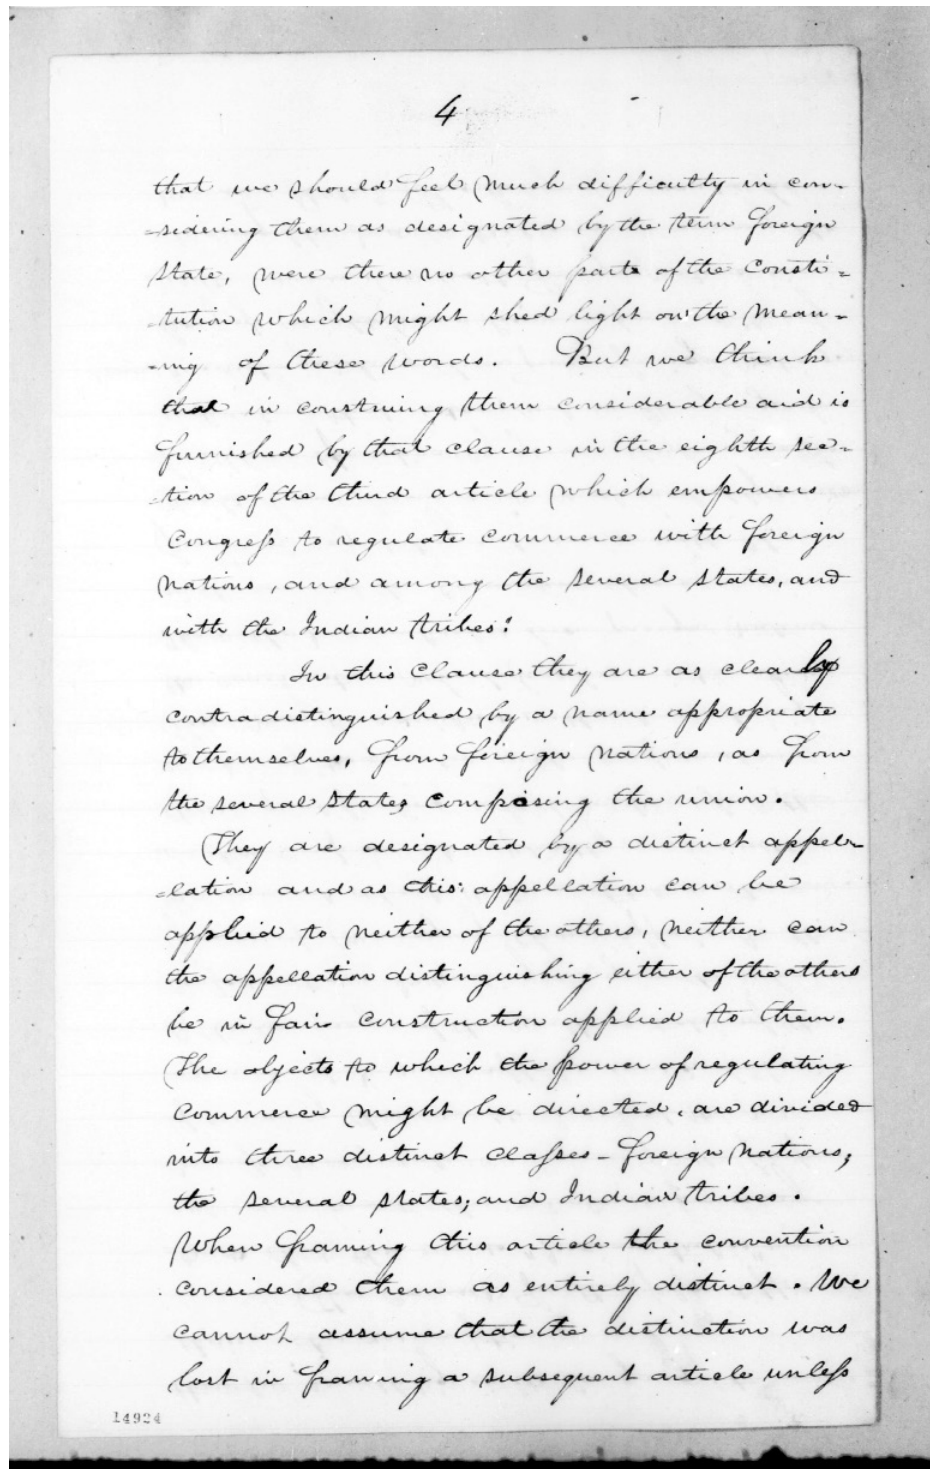 4
that we should feel much difficulty in con-
-sidering them as designated by the term foreign
state, were there no other parts of the consti=
-tution which might shed light on the mean-
-ing of these words. But we think
that in construing them considerable aid is
furnished by that clause in the eighth sec-
-tion of the third article which empowers
Congress to regulate commerce with foreign
nations, and among the several states, and
with the Indian tribes:
In this clause they are as clearly
contradistinguished by a name appropriate
to themselves, from foreign nations, as from
the several states composing the union.
They are designated by a distinct appel-
-lation and as this appellation can be
applied to neither of the others, neither can
the appellation distinguishing either of the others
be in fair construction applied to them.
The objects to which the power of regulating
commerce might be directed, are divided
into three distinct classes - foreign nations,
the several states; and Indian tribes.
When framing this article the convention
considered them as entirely distinct. We
cannot assume that the distinction was
lost in framing a subsequent article unless
14924